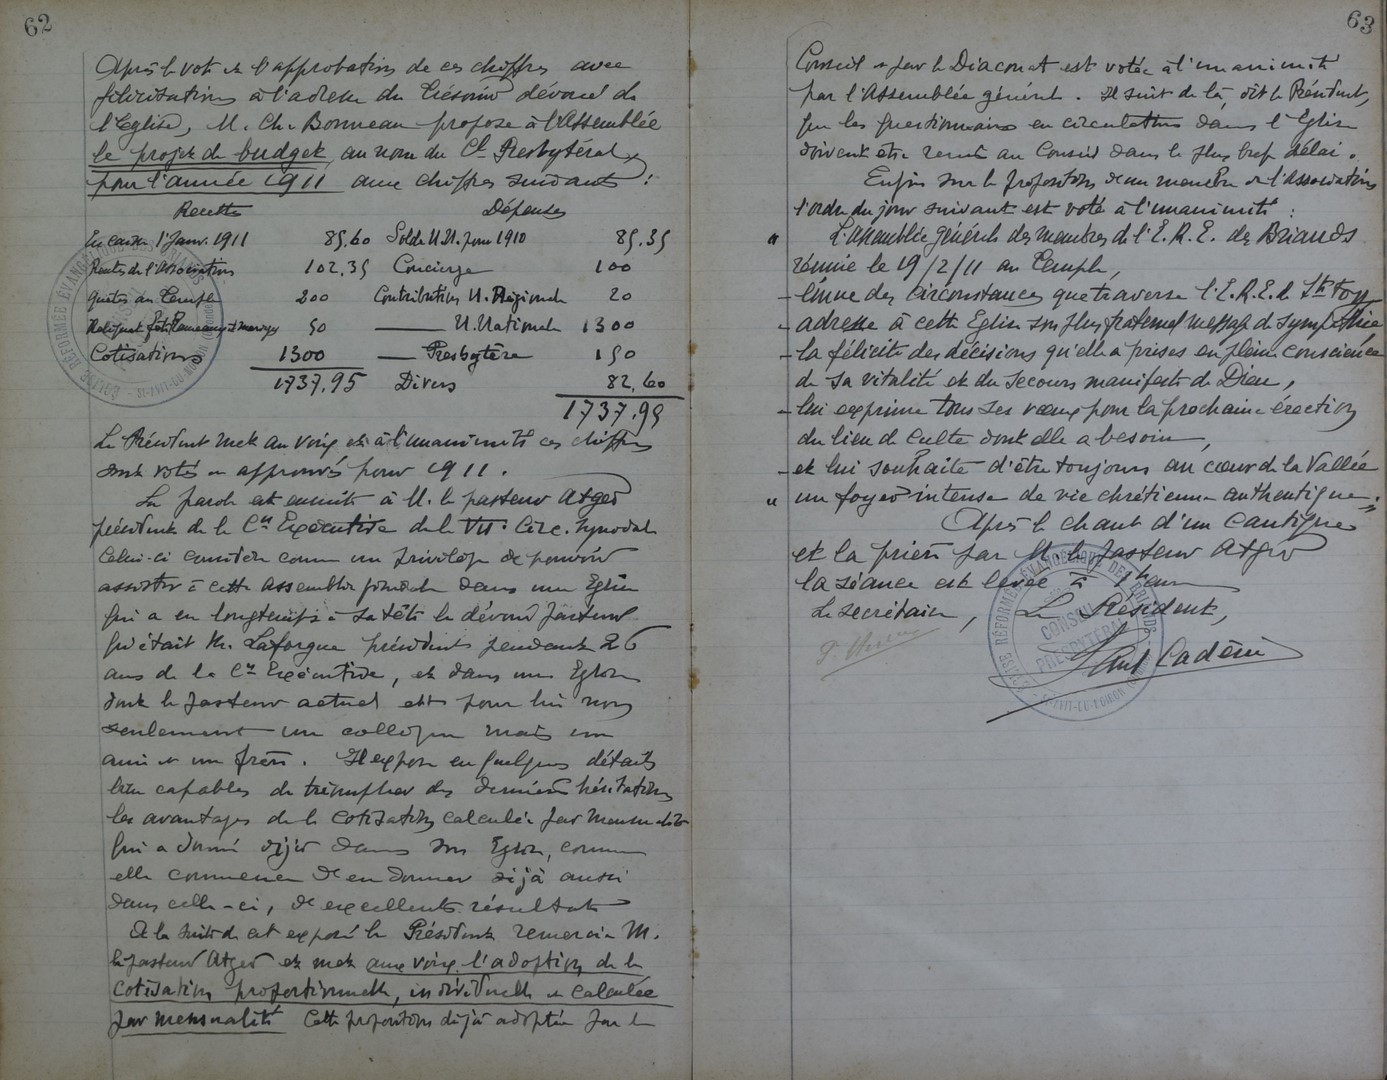 62
Après le vote et l'approbation de ces chiffres avec
félicitations à l'adresse du Trésorier dévoué de
l'Eglise, M. Ch. Bonneau propose à l'Assemblée
le projet de budget au nom du Cl Presbytéral
pour l'année 1911 aux chiffres suivants :
Recettes Dépenses
En caisse 1 Janv. 1911 85,60 Solde U.N. pour 1910 85,35
Rentes de l'Association 102,35 Concierge 100
quêtes au Temple 200 Contribution U. Régionale 20
50 — U. Nationale 1300
Cotisations 1300 — Presbytère 150
1737,95 Divers 82,60
1737,95
Le Président met au voix et à l'unanimité ces chiffres
sont votés et approuvés pour 1911.
La parole est ensuite à M. le pasteur Atger
président de la Con Exécutive de la VIIe Circ. synodale
Celui-ci considère comme un privilège de pouvoir
assister à cette assemblée générale dans une Eglise
qui a eu longtemps à sa tête le dévoué pasteur
qu'était M. Laforgue président pendant 26
ans de la Con Exécutive, et dans une Eglise
dont le pasteur actuel est pour lui non
seulement un collègue mais un
ami et un frère. Il expose en quelques détails
bien capables de triompher des dernières hésitations
les avantages de la cotisation calculée par mensualité
qui a donné déjà dans son Eglise, comme
elle commence d'en donner déjà aussi
dans celle-ci, d'excellents résultats
A la suite de cet exposé le Président remercie M.
le pasteur Atger et met aux voix l'adoption de la
cotisation proportionnelle, individuelle et calculée
par mensualité Cette proposition déjà adoptée par le
63
Conseil et par le Diaconat est votée à l'unanimité
par l'Assemblée générale. Il suit de là, dit le Président,
que les questionnaires en circulation dans l'Eglise
doivent être remis au Conseil dans le plus bref délai.
Enfin sur la proposition d'un membre de l'Association
l'ordre du jour suivant est voté à l'unanimité :
" L'Assemblée générale des membres de l'E.R.E. des Briands
réunie le 19/2/11 au Temple,
- Emue des circonstances que traverse l'E.R.E. de Ste Foy
- adresse à cette Eglise son plus fraternel message de sympathie
- la félicite des décisions qu'elle a prises en pleine conscience
de sa vitalité et du secours manifeste de Dieu,
- lui exprime tous ses vœux pour la prochaine érection
du lieu de culte dont elle a besoin,
- et lui souhaite d'être toujours au cœur de la Vallée
" un foyer intense de vie chrétienne authentique."
Après le chant d'un cantique
et la prière par M. le pasteur Atger
la séance est levée à heure
Le secrétaire, Le Président,
Paul Cadène
EGLISE RÉFORMÉE ÉVANGÉLIQUE DES BRIANDS
CONSEIL
PRESBYTÉRAL